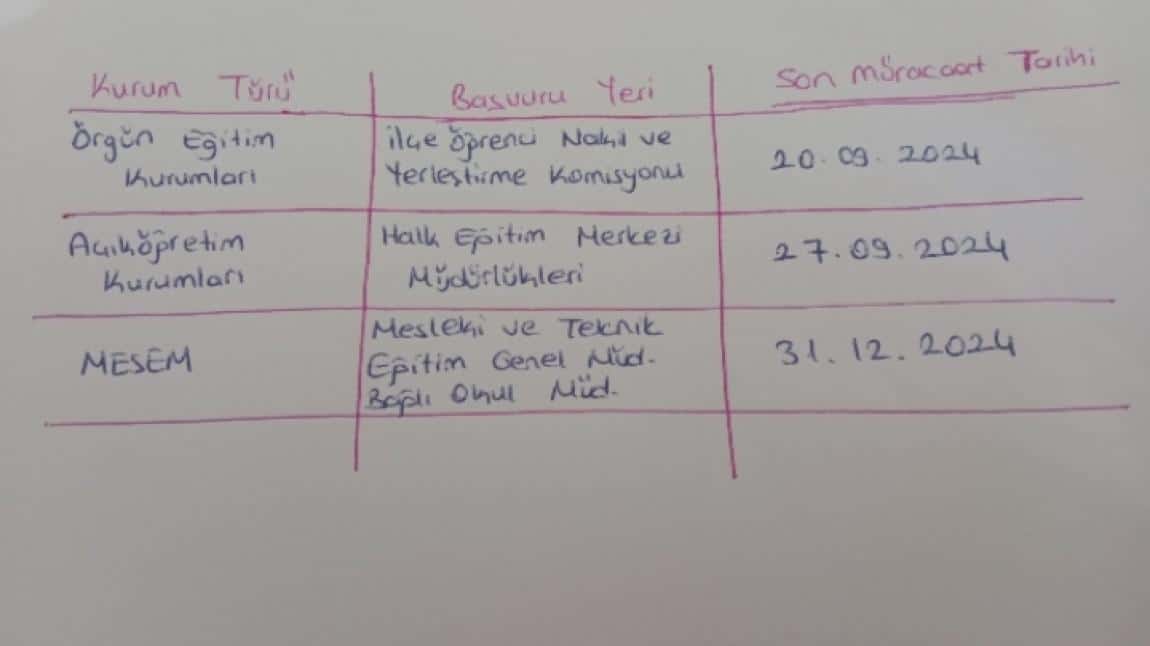 Kurum Türü
Başvuru Yeri
Son müracaat Tarihi
Örgün Eğitim
Kurumları
İlçe Öğrenci Nakil ve
Yerleştirme Komisyonu
20.09.2024
Açıköğretim
Kurumları
Halk Eğitim Merkezi
Müdürlükleri
27.09.2024
MESEM
Mesleki ve Teknik
Eğitim Genel Müd.
Bağlı Okul Müd.
31.12.2024